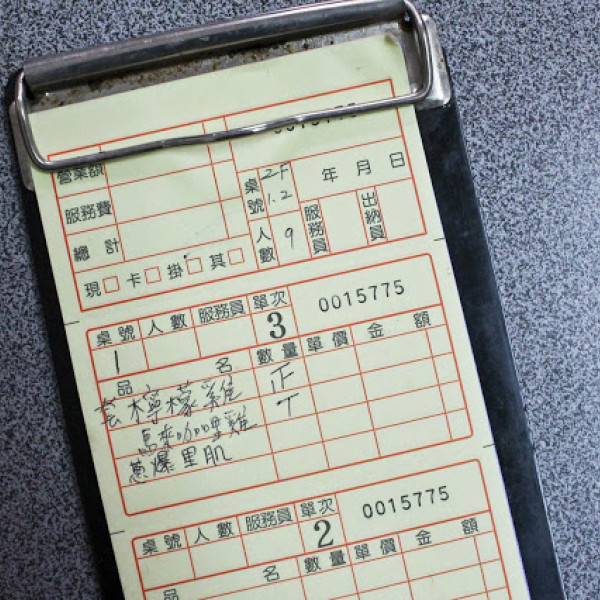 0015775
營業額
桌號 2F 1.2 年 月 日
服務費
總計
人數 9 服務員 出納員
現□ 卡□ 掛□ 其□
桌號 人數 服務員 單次 0015775
1 3
品名 數量 單價 金額
套檸檬雞 正
咖哩雞 丅
蔥爆里肌
桌號 人數 服務員 單次 0015775
2
品名 數量 單價 金額